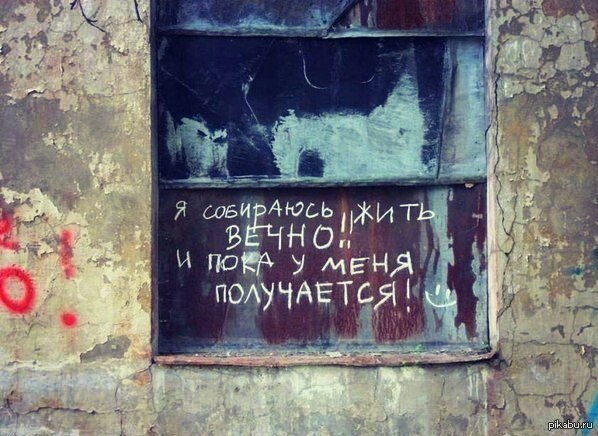 Я СОБИРАЮСЬ ЖИТЬ
ВЕЧНО!!
И ПОКА У МЕНЯ
ПОЛУЧАЕТСЯ!
О!
pikabu.ru